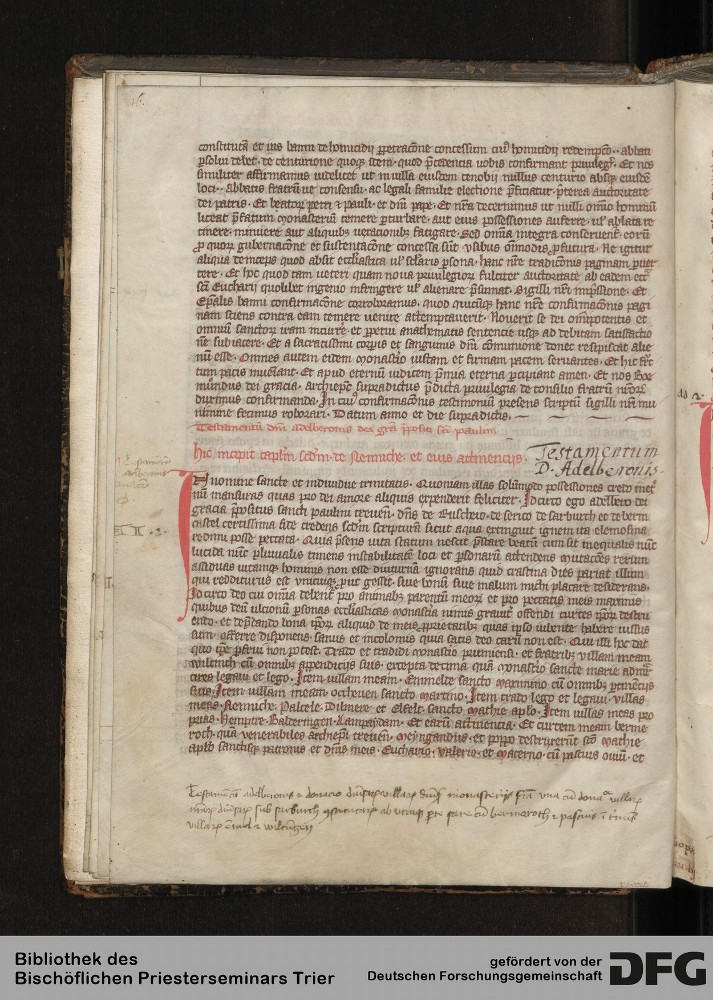 16.
constitutā et ius banni de homicidii ꝑpetracōne concessum cuiꝰ homicidii redempcō.. abbati
ꝑsolui debet. de centurione quoqꝫ item. quod p̄cedencia uobis confirmant priuileg̅. Et nos
similiter affirmamus uidelicet ut in uilla eiusdem cenobii nullus centurio absqꝫ eiusdē
loci.. abbatis fratrū ue consensu. ac legali familie electione p̄ficiatur. p̄terea auctoritate
dei patris. Et beatoꝝ petri ⁊ pauli. et dn̄i pape. Et nr̄a decernimus ut nulli om̄io hominū
liceat p̄fatum monasteriū temere ꝑturbare. aut eius possessiones auferre. ul' ablata re
tinere. minuere aut aliquibꝫ uexacionibꝫ fatigare. Sed om̄ia integra conseruent̄. eorū
ꝓ quoꝝ gubernacōne et sustentacōne concessa sūt vsibus om̄imodis ꝓfutura. Ac igitur
aliqua deinceps quod absit eccl'iastica ul' sc̄laris ꝑsona. hanc nr̄e tradicōnis paginam
tere. Et hoc quod tam ueteri quam noua priuilegioꝝ fulcitur auctoritate ab eadem ecc̄
sc̄i Eucharii quolibet ingenio infringere ul' alienare p̄sumat. Sigilli nr̄i inp̄ssione. Et
Ep̄alis banni confirmacōne corroboramus. quod quicūqꝫ hanc nr̄e confirmacōnis pagi
nam sciens contra eam temere uenire attemptauerit. Nouerit se dei om̄ipotentis et
omniū sanctoꝝ iram incurre. et ꝑpetui anathematis sentencie usqꝫ ad debitam satisfactio
nē subiacere. Et a sacratissimi corꝑis et sanguinis dn̄i cōmunione donec resipiscat alie
nū esse. Omnes autem eidem monast̄io iustam et firmam pacem seruantes. Et hic fr̄c
tum pacis inueniant. Et apud eternū iudicem p̄mia eterna ꝑcipiant amen. Et nos Boe
mundus dei gracia. archiep̄c supradictus p̄dicta priuilegia de consilio fratrū nr̄oꝝ
duximus confirmanda. In cuiꝰ confirmacōnis testimoniū presens scriptū sigilli nr̄i mu
nimine fecimus roborari. Datum anno et die supradictis.
Testamentū dn̄i adelberonis dei gr̄a p̄positi sc̄i paulini
hic incipit capl'm sc̄dm. de Nenniche. et eius attinencijs.
Testamentum
D. Adelberonis.
In nomine sancte et indiuidue trinitatis. Quoniam illas solūmodo possessiones credo
nū mansuras quas pro dei amore aliquis expenderit feliciter. Idcirco ego adelbero dei
gracia p̄positus sancti paulini treuen̄. dn̄s de Ruscheio. de serico de sarburch et de bern
castel certissima fide credens sc̄dm scripturā sicut aqua extinguit ignem ita elemosina
redimi posse peccata. Quia p̄sens uita statum nescit p̄stare beatū cum sit inequalis nūc
lucida nūc pluuialis timens instabilitatē loci et ꝑsonarū attendens mutacōes rerum
assiduas uitamqꝫ hominis non esse diuturnā ignorans quid crastina dies pariat illum
qui redditurus est vnicuiqꝫ put gessit. siue bonū siue malum michi placare desiderans.
Idcirco deo cui om̄ia debent̄ pro animabꝫ parentū meoꝝ et pro peccatis meis maximis
quibus deū ulcionū ꝑsonas ecclesiasticas monast̄ia nimis grauit̄ offendi curtes ip̄oꝝ destru
endo. et dep̄dando bona ip̄oꝝ aliquid de meis ꝓprietatibꝫ quas ip̄o iubente habere iussus
sum. offerre disponens. sanus et incolomis quia satis deo carū non est. Qui illi hoc dat
quo ip̄e p̄frui non potest. Trado et tradidi monast̄io prumensi. et fratribꝫ villam meam
wiltinch cū omnibꝫ appendicijs suis. excepta decima quā monast̄io sancte marie ad
tires legaui et lego. Item uillam meam. Emmelde sancto maximino cū omnibꝫ ꝑtinēcijs
suis. Item uillam meam. ocheuen sancto martino. Item trado lego et legaui. villas
meas. Nenniche. Palcele. Dilmere. et Elsele. sancto Mathie apl'o. Item uillas meas pro
prias. Hemptre. Balderingen. Lampaydam. Et earū attinencia. Et curtem meam berme
roth. quā venerabiles archiep̄i treuen̄. meyngaudus. et poppo destruxerūt sc̄o Mathie
apl'o sanctisqꝫ patronis et dn̄is meis. Euchario. Valerio. et Materno. cū pascuis ouiū. et
villarꝫ em̄el ⁊ wiltingen
Bibliothek des
Bischöflichen Priesterseminars Trier
gefördert von der
Deutschen Forschungsgemeinschaft
DFG